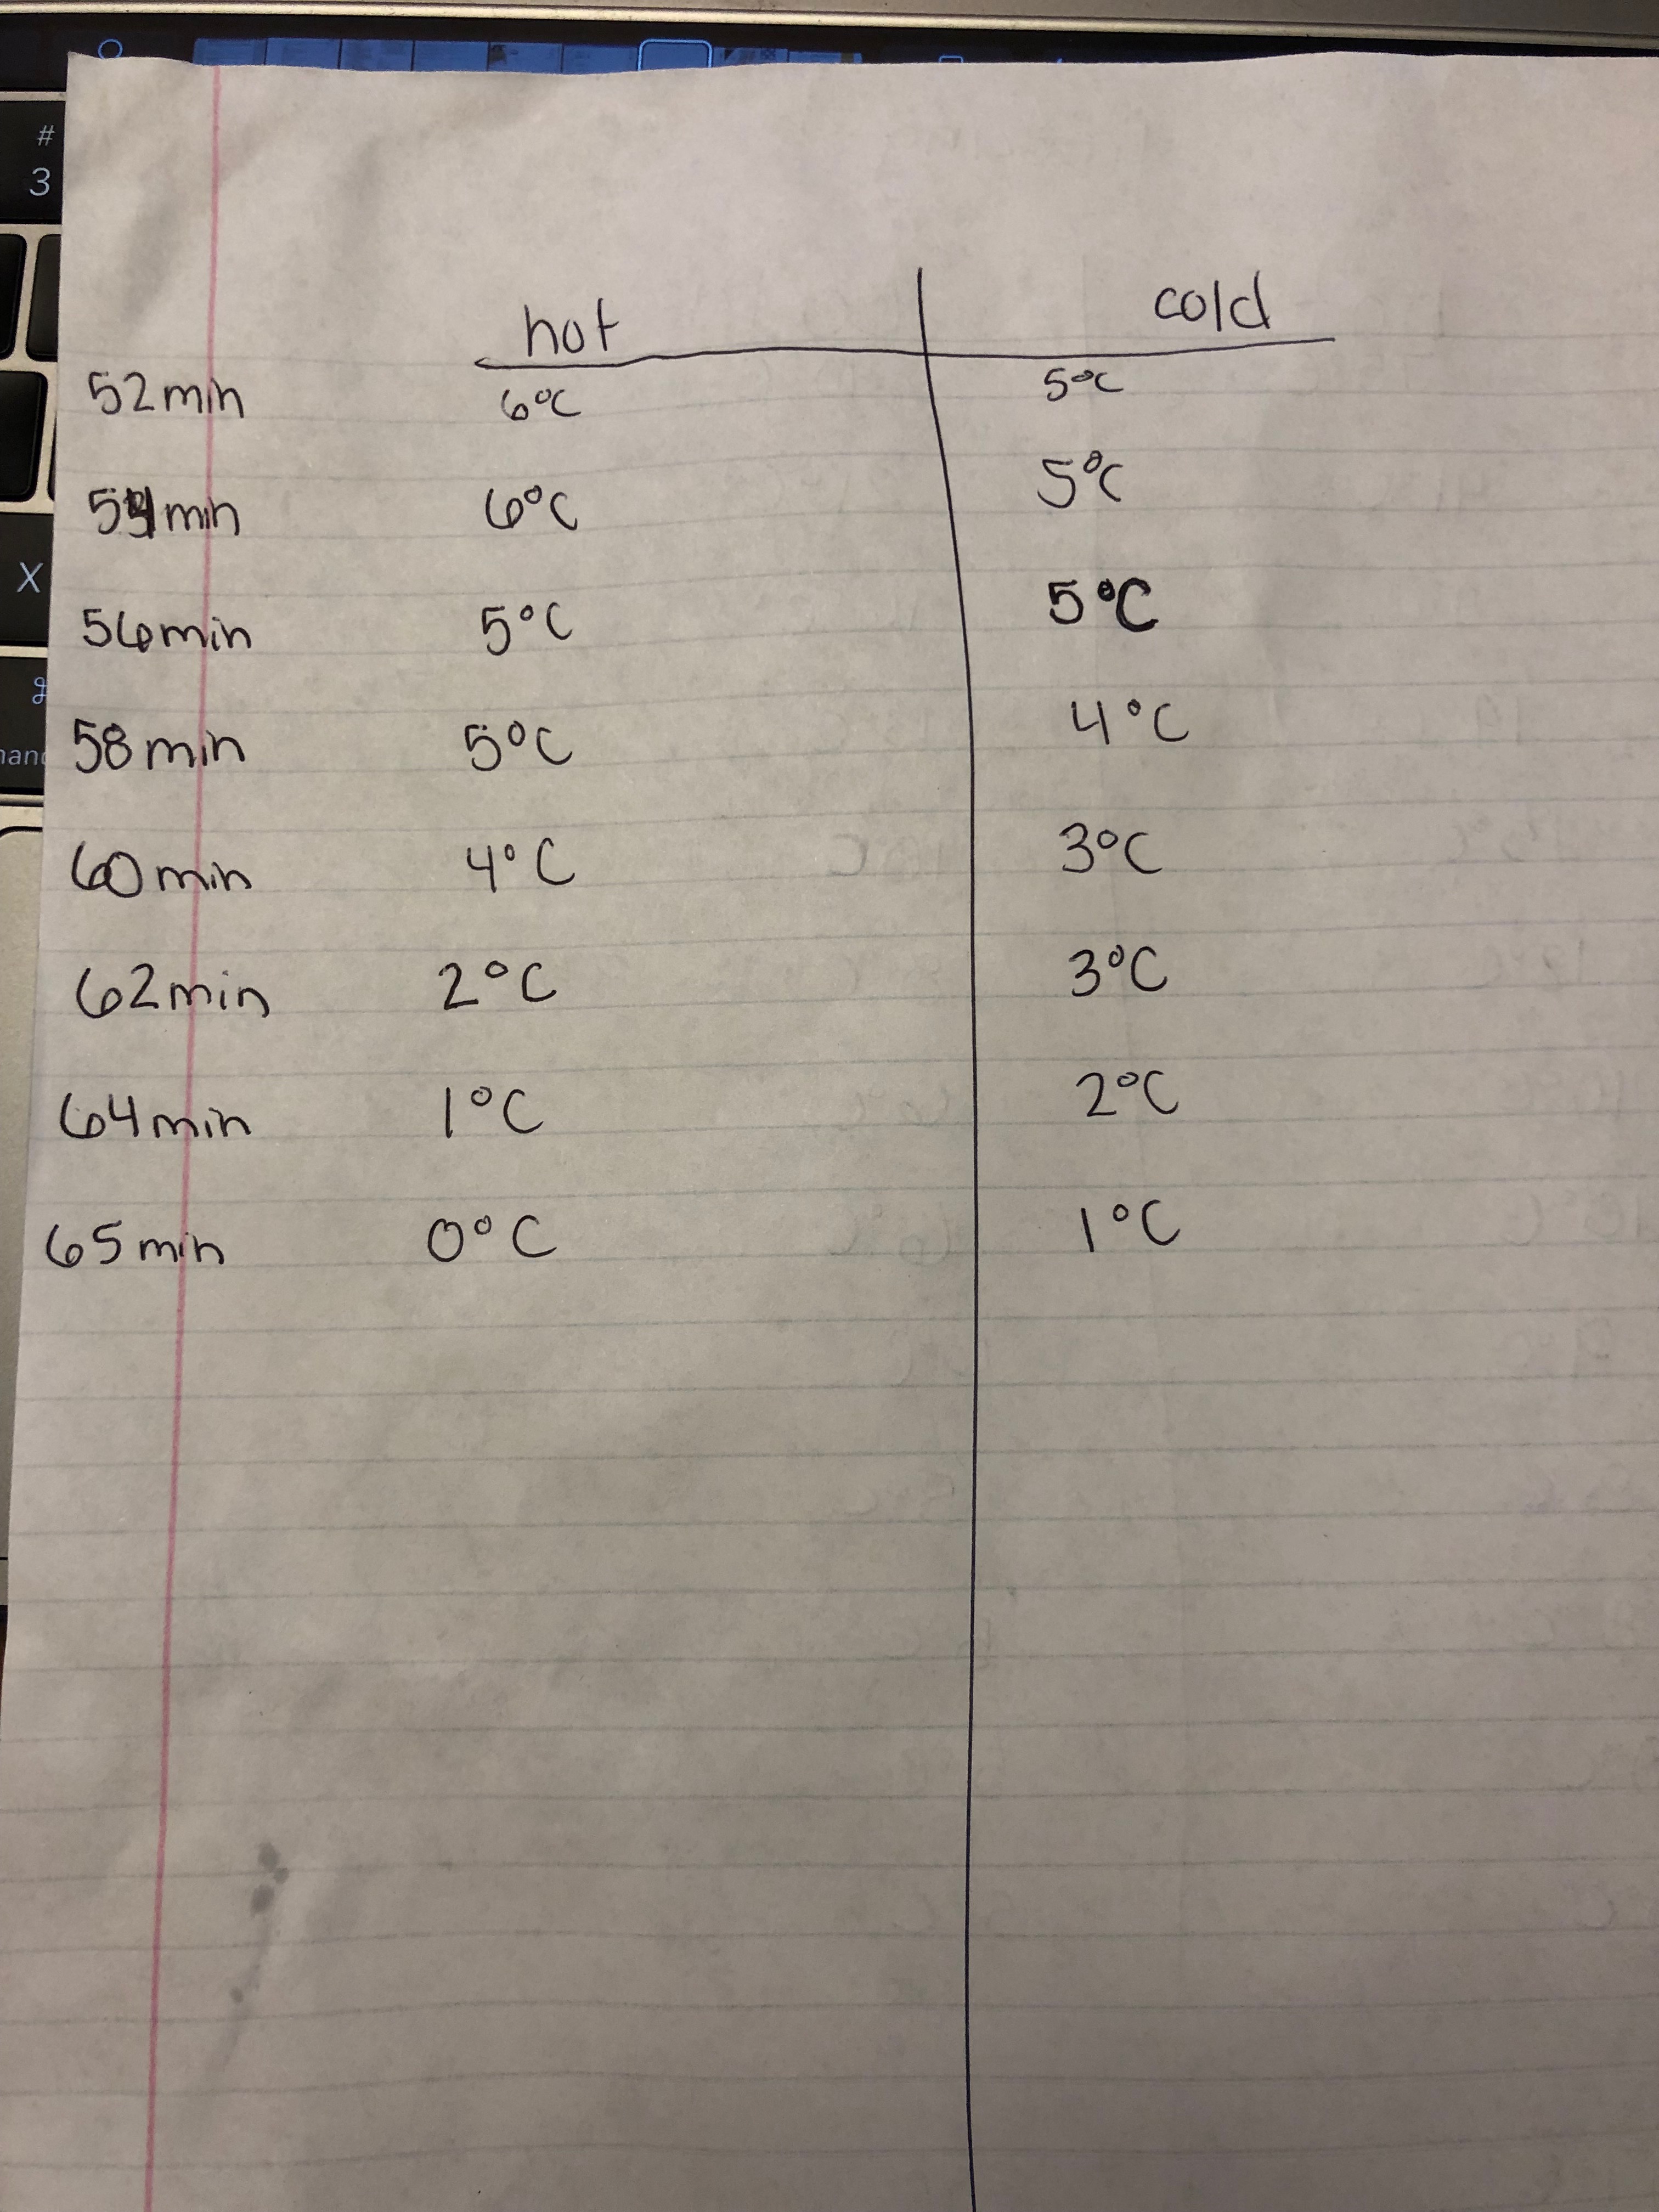 #
3
X
⌘
hot cold
52min 6°C 5°C
54min 6°C 5°C
56min 5°C 5°C
58min 5°C 4°C
60min 4°C 3°C
62min 2°C 3°C
64min 1°C 2°C
65min 0°C 1°C